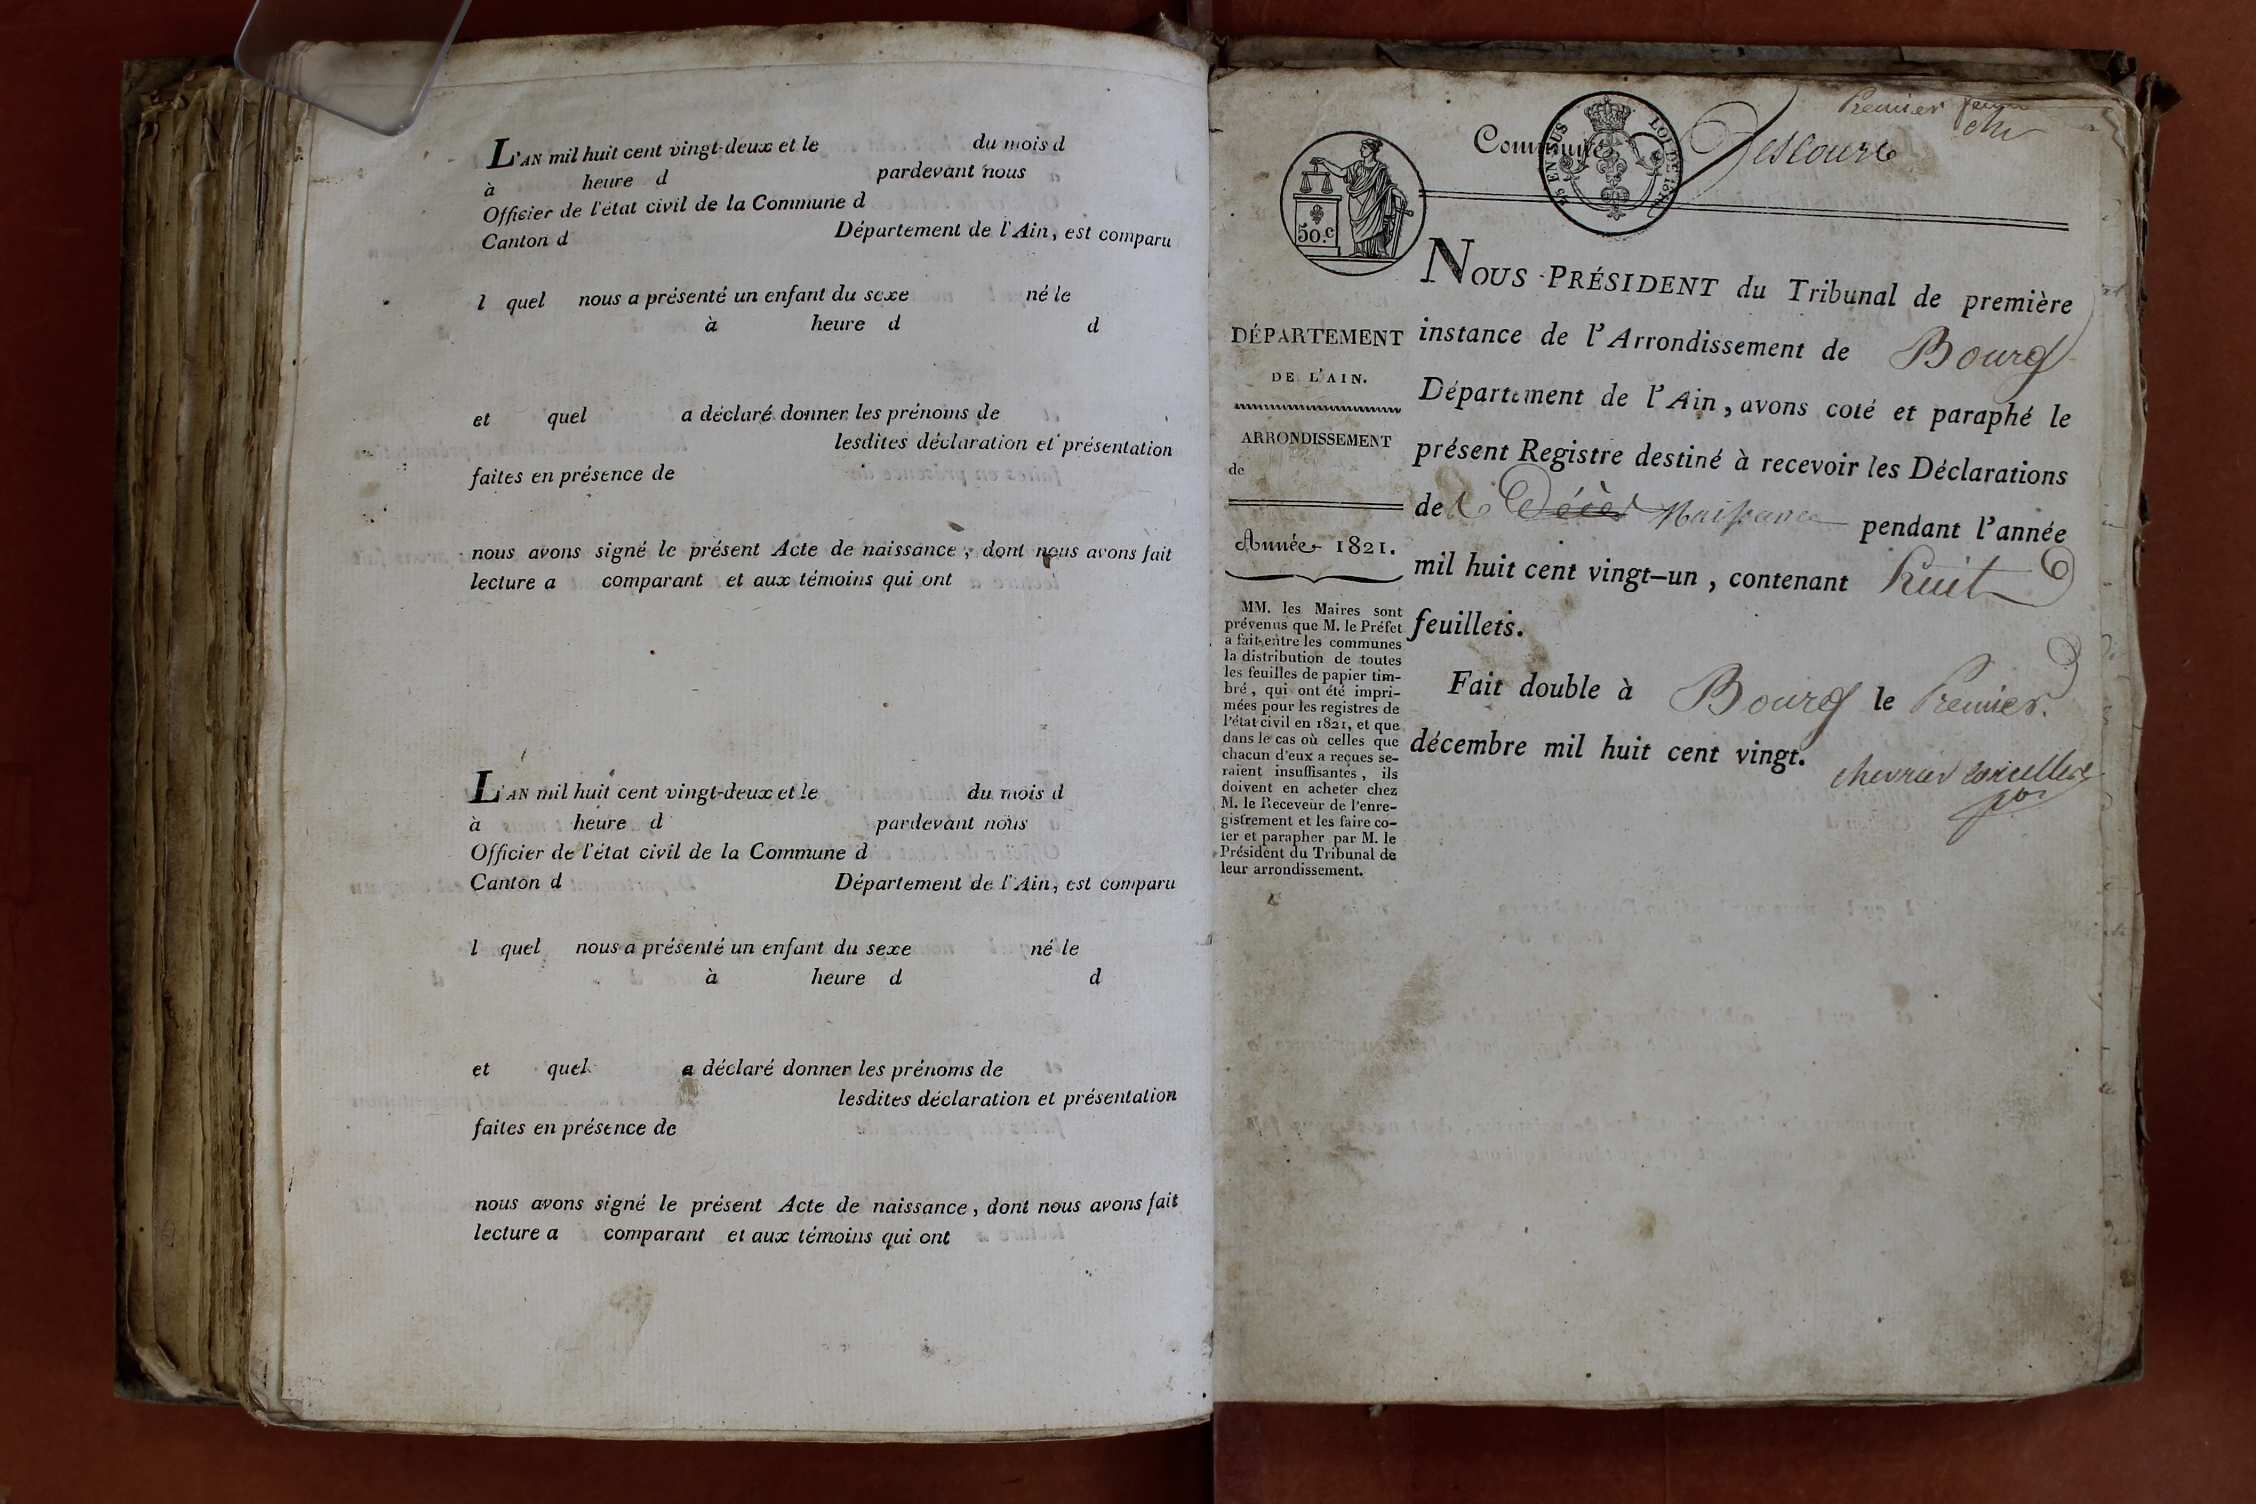 L'AN mil huit cent vingt-deux et le du mois d
à heure d pardevant nous
Officier de l'état civil de la Commune d
Canton d Département de l'Ain, est comparu
l quel nous a présenté un enfant du sexe né le
à heure d d
et quel a déclaré donner les prénoms de
lesdites déclaration et présentation
faites en présence de
nous avons signé le présent Acte de naissance, dont nous avons fait
lecture a comparant et aux témoins qui ont
L'AN mil huit cent vingt-deux et le du mois d
à heure d pardevant nous
Officier de l'état civil de la Commune d
Canton d Département de l'Ain, est comparu
l quel nous a présenté un enfant du sexe né le
à heure d d
et quel a déclaré donner les prénoms de
lesdites déclaration et présentation
faites en présence de
nous avons signé le présent Acte de naissance, dont nous avons fait
lecture a comparant et aux témoins qui ont
Premier
Commune
EN SUS LOI DE
50.c
NOUS PRÉSIDENT du Tribunal de première
instance de l'Arrondissement de Bourg
Département de l'Ain, avons coté et paraphé le
présent Registre destiné à recevoir les Déclarations
de Décès Naissance pendant l'année
mil huit cent vingt-un, contenant huit
feuillets.
Fait double à Bourg le Premier
décembre mil huit cent vingt.
DÉPARTEMENT
DE L'AIN.
ARRONDISSEMENT
de
Année 1821.
MM. les Maires sont
prévenus que M. le Préfet
a fait entre les communes
la distribution de toutes
les feuilles de papier tim-
bré, qui ont été impri-
mées pour les registres de
l'état civil en 1821, et que
dans le cas où celles que
chacun d'eux a reçues se-
raient insuffisantes, ils
doivent en acheter chez
M. le Receveur de l'enre-
gistrement et les faire co-
ter et parapher par M. le
Président du Tribunal de
leur arrondissement.